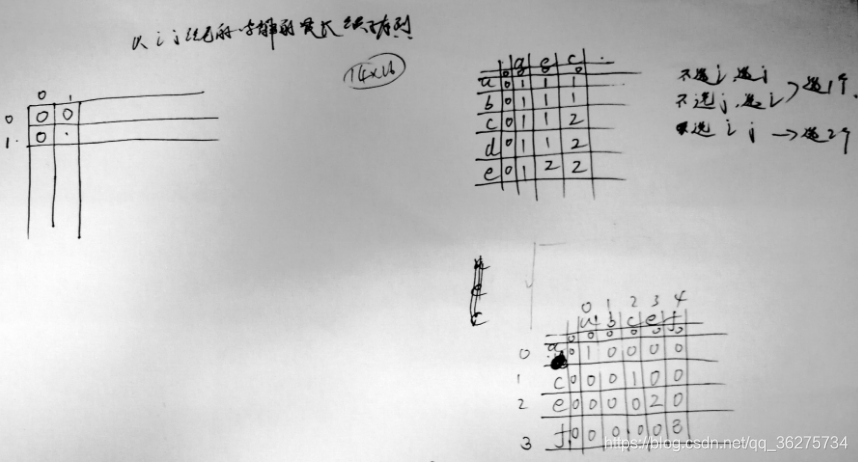 以 i j 结尾的字符串的最长公共子序列
0 1
0 0 0
1 0
g c
0 0
a 0 1 1 1
b 0 1 1 1
c 0 1 1 2
d 0 1 1 2
e 0 1 2 2
不选 i, 选 j
不选 j, 选 i
选1个
选 i j → 选2个
0 1 2 3 4
a b c e f
0 0 0 0 0 0
0 a 0 1 0 0 0 0
1 c 0 0 0 1 0 0
2 e 0 0 0 0 2 0
3 f 0 0 0 0 0 3
https://blog.csdn.net/qq_36275734